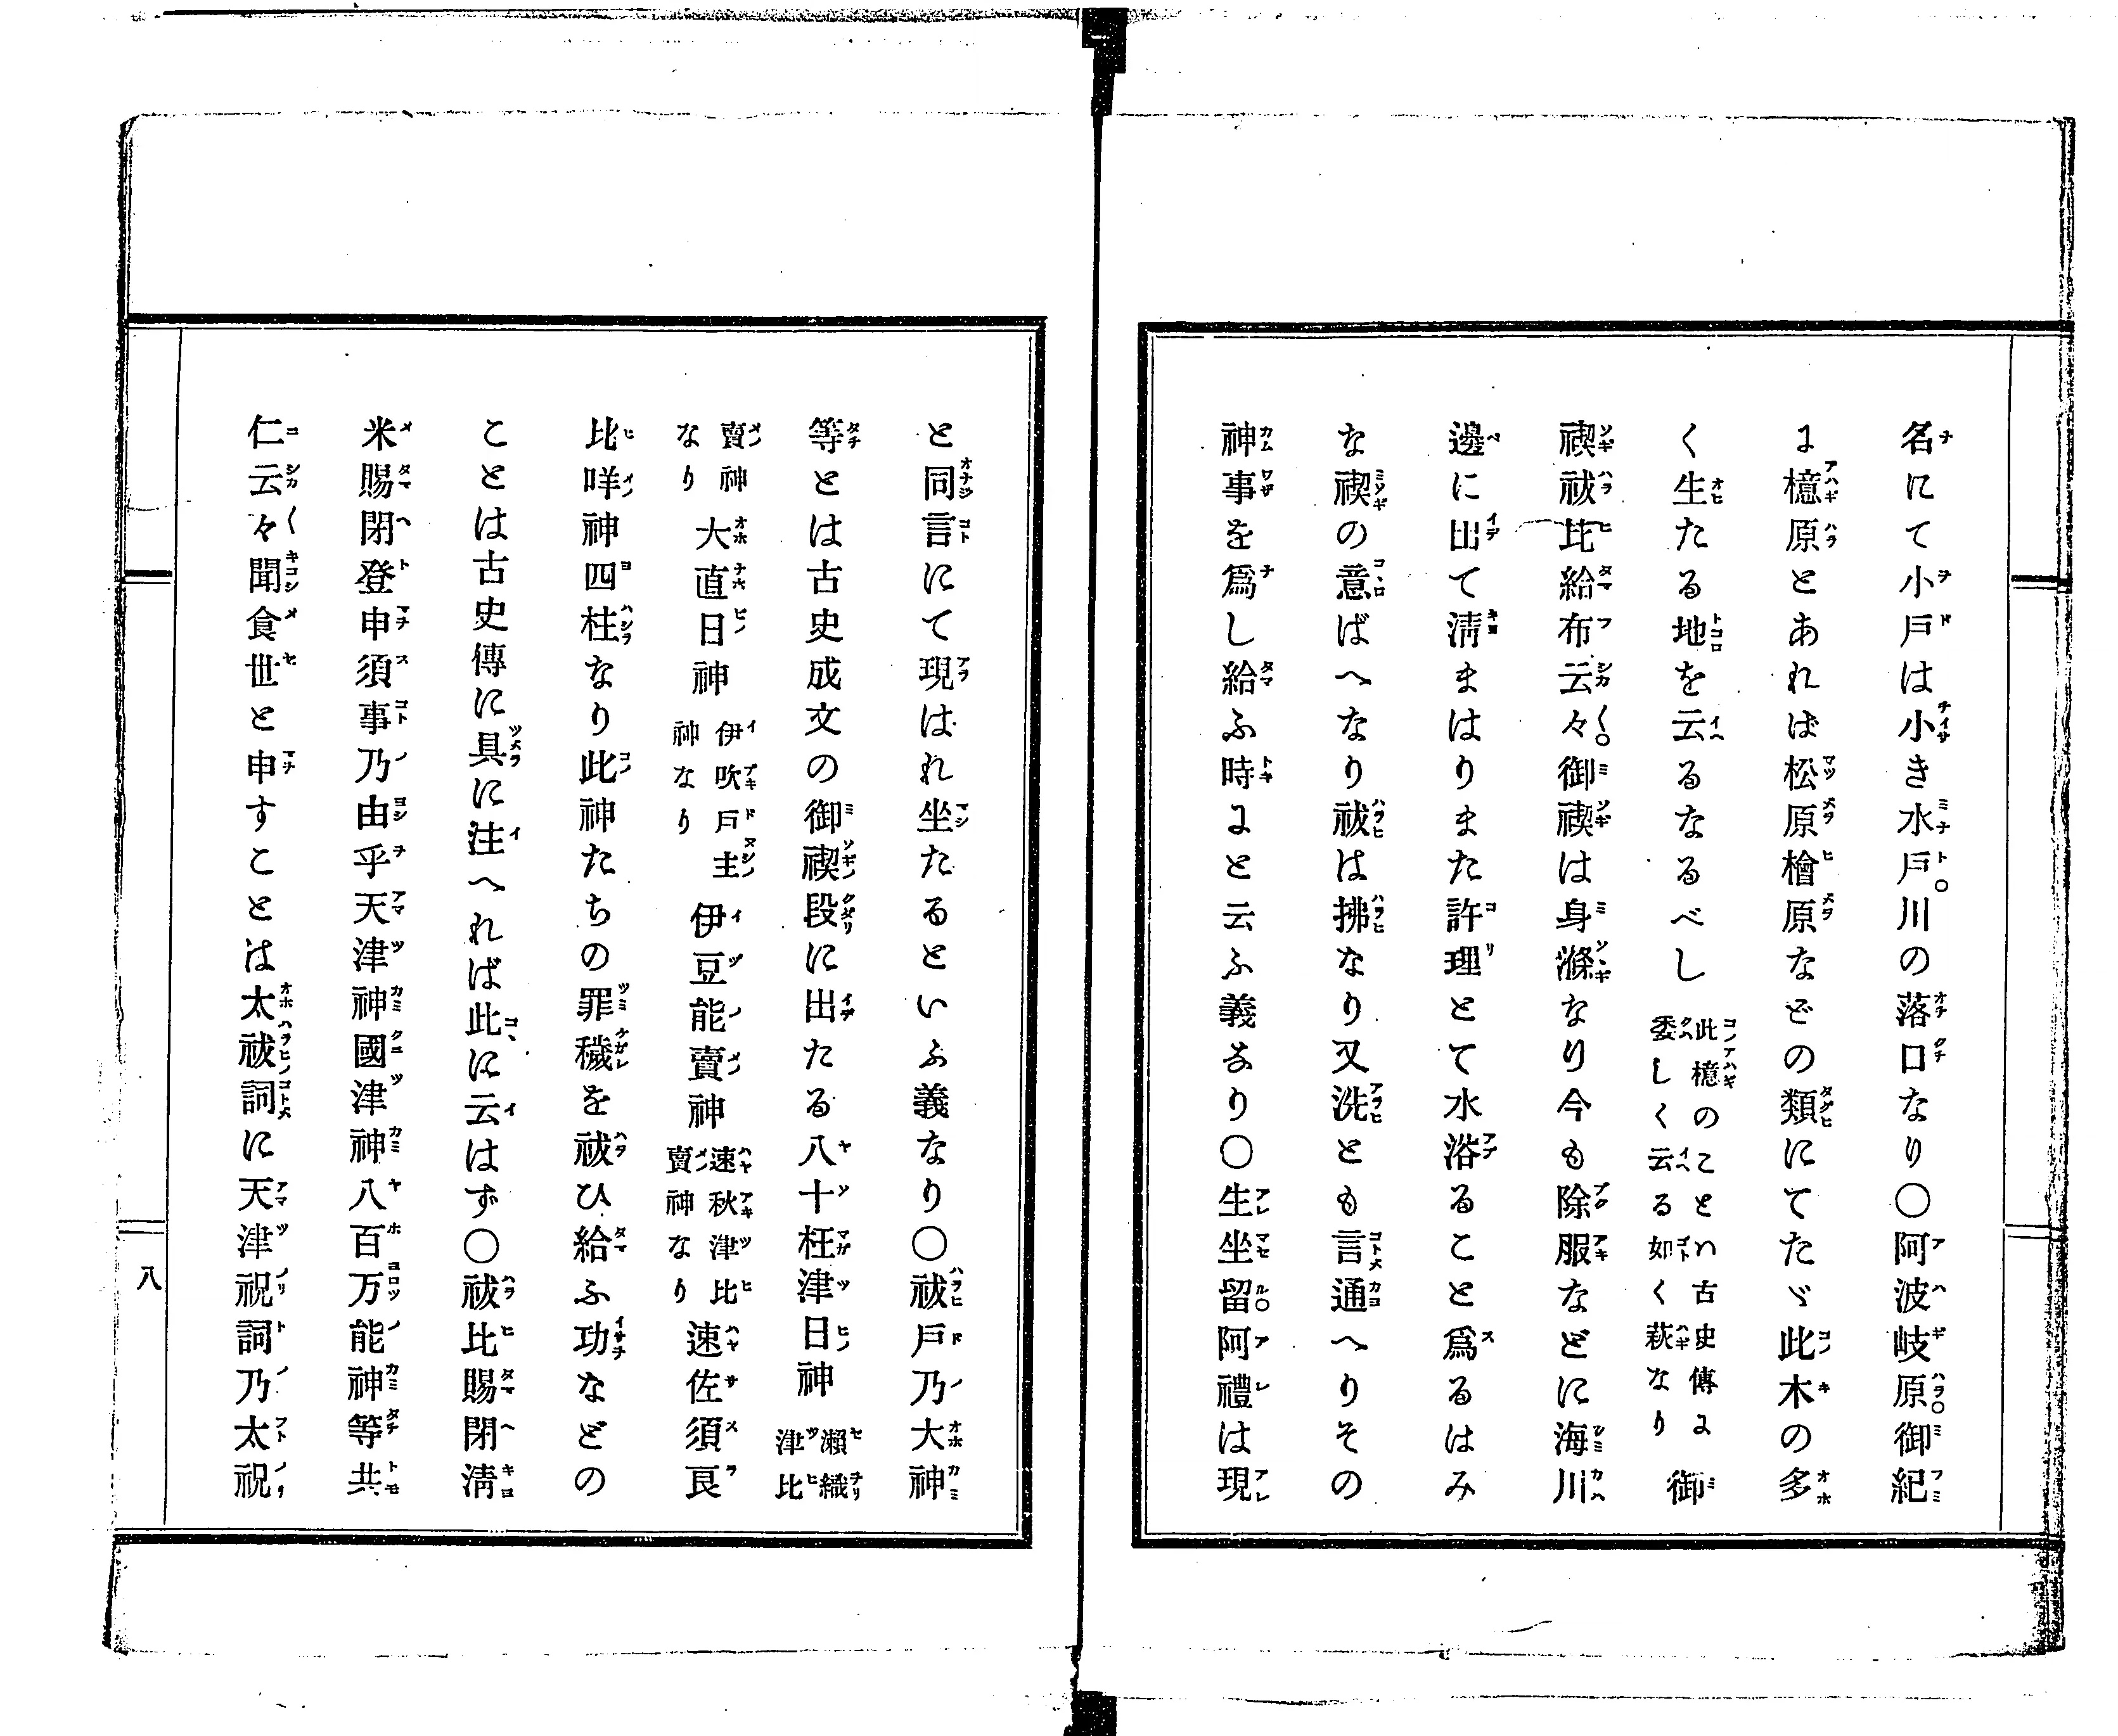 名にて小戸は小き水戸。川の落口なり〇阿波岐原。御紀
に檍原とあれば松原檜原などの類にてたゞ此木の多
く生たる地を云るなるべし此檍のことハ古史傳に委しく云る如く萩なり御
禊祓比給布云々。御禊は身滌なり今も除服などに海川
邊に出て淸まはりまた許理とて水浴ることと爲るはみ
な禊の意ばへなり祓は拂なり又洗とも言通へりその
神事を爲し給ふ時にと云ふ義なり〇生坐留。阿禮は現
と同言にて現はれ坐たるといふ義なり〇祓戸乃大神
等とは古史成文の御禊段に出たる八十枉津日神瀬織津比
賣神なり大直日神伊吹戸主神なり伊豆能賣神速秋津比賣神なり速佐須良
比咩神四柱なり此神たちの罪穢を祓ひ給ふ功などの
ことは古史傳に具に注へれば此に云はず〇祓比賜閉淸
米賜閉登申須事乃由乎天津神國津神八百万能神等共
仁云々聞食世と申すことは太祓詞に天津祝詞乃太祝
八